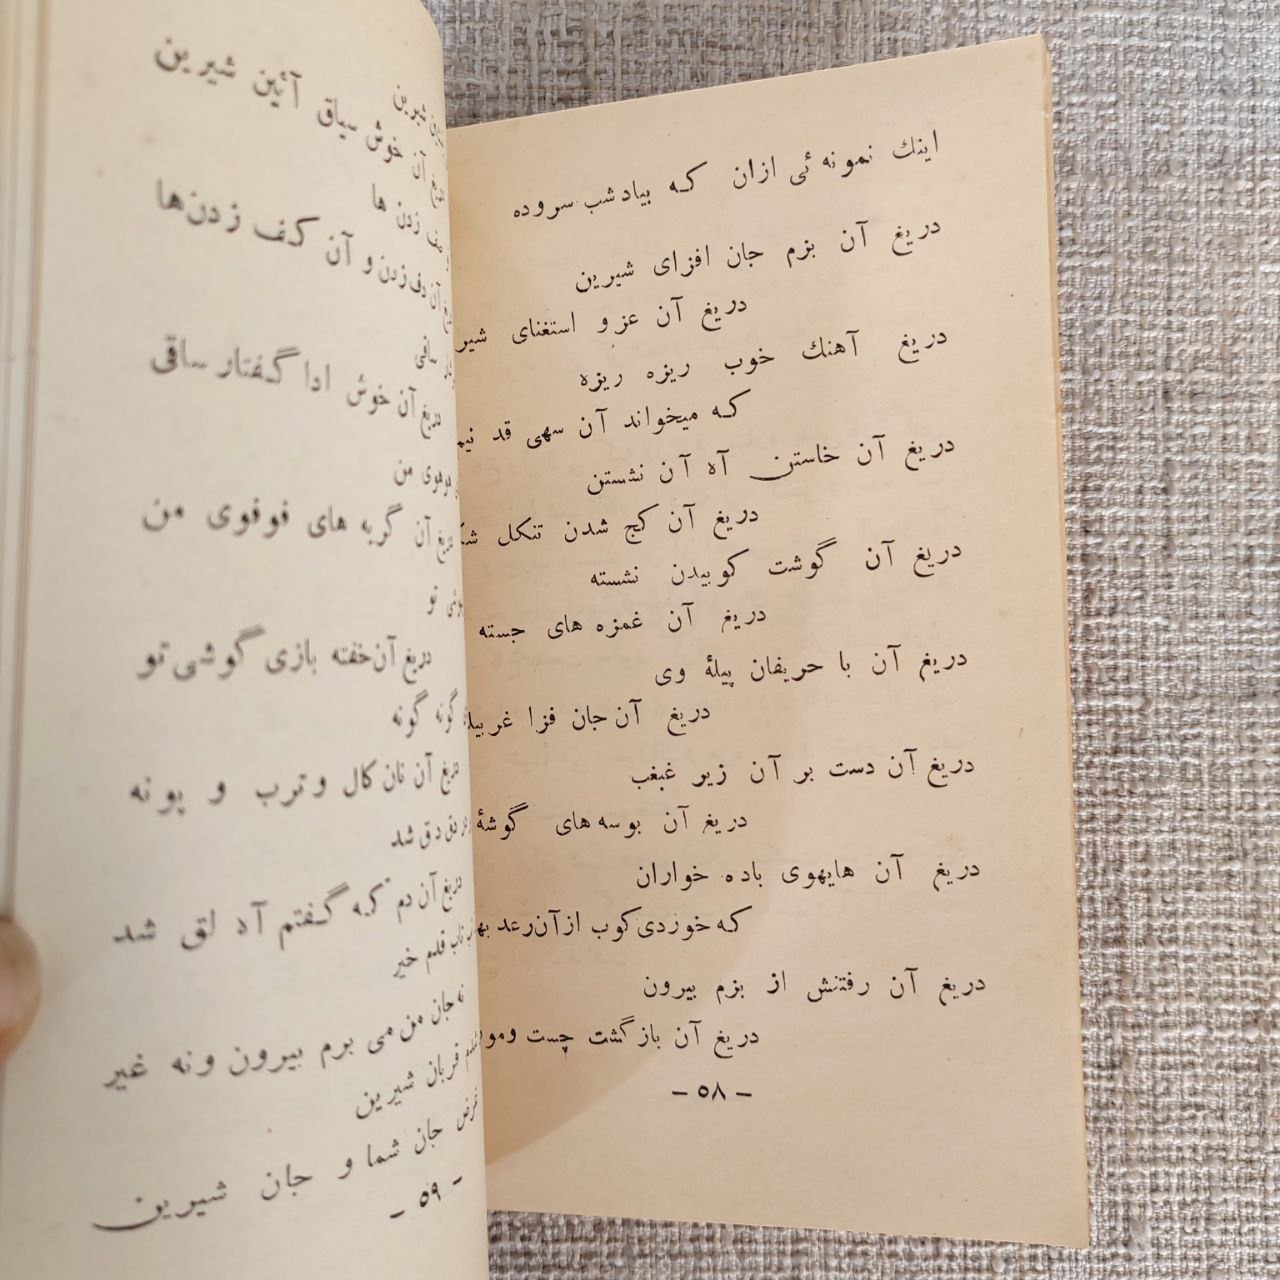 اینك نمونه ئی ازان که بیاد شب سروده
دریغ آن بزم جان افزای شیرین
دریغ آن عز و استغنای
دریغ آهنك خوب ریزه ریزه
که میخواند آن سهی قد
دریغ آن خاستن آه آن نشستن
دریغ آن کج شدن تنکل
دریغ آن گوشت کوبیدن نشسته
دریغ آن غمزه های جسته
دریغ آن با حریفان پیلهٔ وی
دریغ آن جان فزا
دریغ آن دست بر آن زیر غبغب
دریغ آن بوسه های گوشهٔ
دریغ آن هایهوی باده خواران
که خوردی کوب از آن رعد
دریغ آن رفتنش از بزم بیرون
دریغ آن بازگشت چست
- ۵۸ -
شیرین
دریغ آن خوش سیاق آئین شیرین
زدن ها
دریغ آن دف زدن و آن کف زدن‌ها
ساقی
دریغ آن خوش ادا گفتار ساقی
هوهوی من
دریغ آن گریه های فوفوی من
تو
دریغ آن خفته بازی گوشی تو
گونه گونه
دریغ آن نان کال و ترب و پونه
دق دق شد
دریغ آن دم که گفتم آه لق شد
قدم خیر
نه جان من می برم بیرون ونه غیر
قربان شیرین
غرض جان شما و جان شیرین
- ۵۹ -